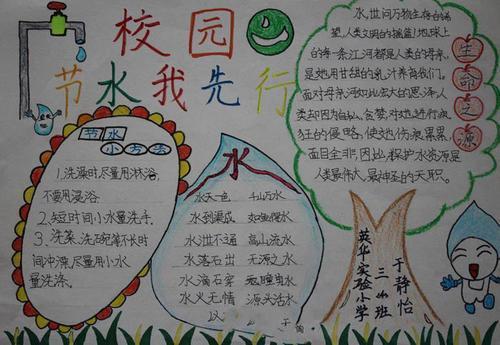 校园
节水我先行
节水
小方法
1.洗澡时尽量用淋浴,
不要用浸浴
2.短时间小水量洗手.
3.洗菜、洗碗筷不长时
间冲漂,尽量用小水
量洗涤.
水
水天一色 千山万水
水到渠成 如鱼得水
水泄不通 高山流水
水落石出 无源之水
水滴石穿
水火无情 源头活水
水,世间万物生存的希
望,人类文明的摇篮!地球上
的每一条江河都是人类的母亲,
是她用甘甜的乳汁养育我们。
面对母亲河如此宏大的恩泽,人
类却因为自私、贪婪,对她进行疯
狂的侵略,使她伤痕累累,
面目全非,因此,保护水资源是
人类最伟大、最神圣的天职。
生命之源
英华实验小学
三班
于静怡